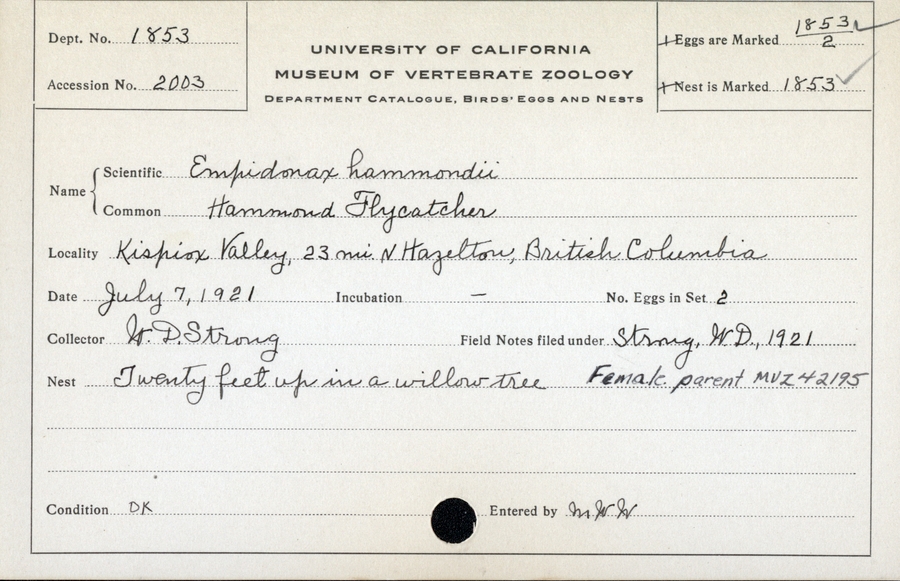 Dept. No. 1853
Accession No. 2003
UNIVERSITY OF CALIFORNIA
MUSEUM OF VERTEBRATE ZOOLOGY
DEPARTMENT CATALOGUE, BIRDS' EGGS AND NESTS
Eggs are Marked 1853/2
Nest is Marked 1853
Name
Scientific Empidonax hammondii
Common Hammond Flycatcher
Locality Kispiox Valley, 23 mi. N Hazelton, British Columbia
Date July 7, 1921 Incubation — No. Eggs in Set 2
Collector W. D. Strong Field Notes filed under Strong, W.D., 1921
Nest Twenty feet up in a willow tree Female parent MVZ 42195
Condition OK Entered by MWW